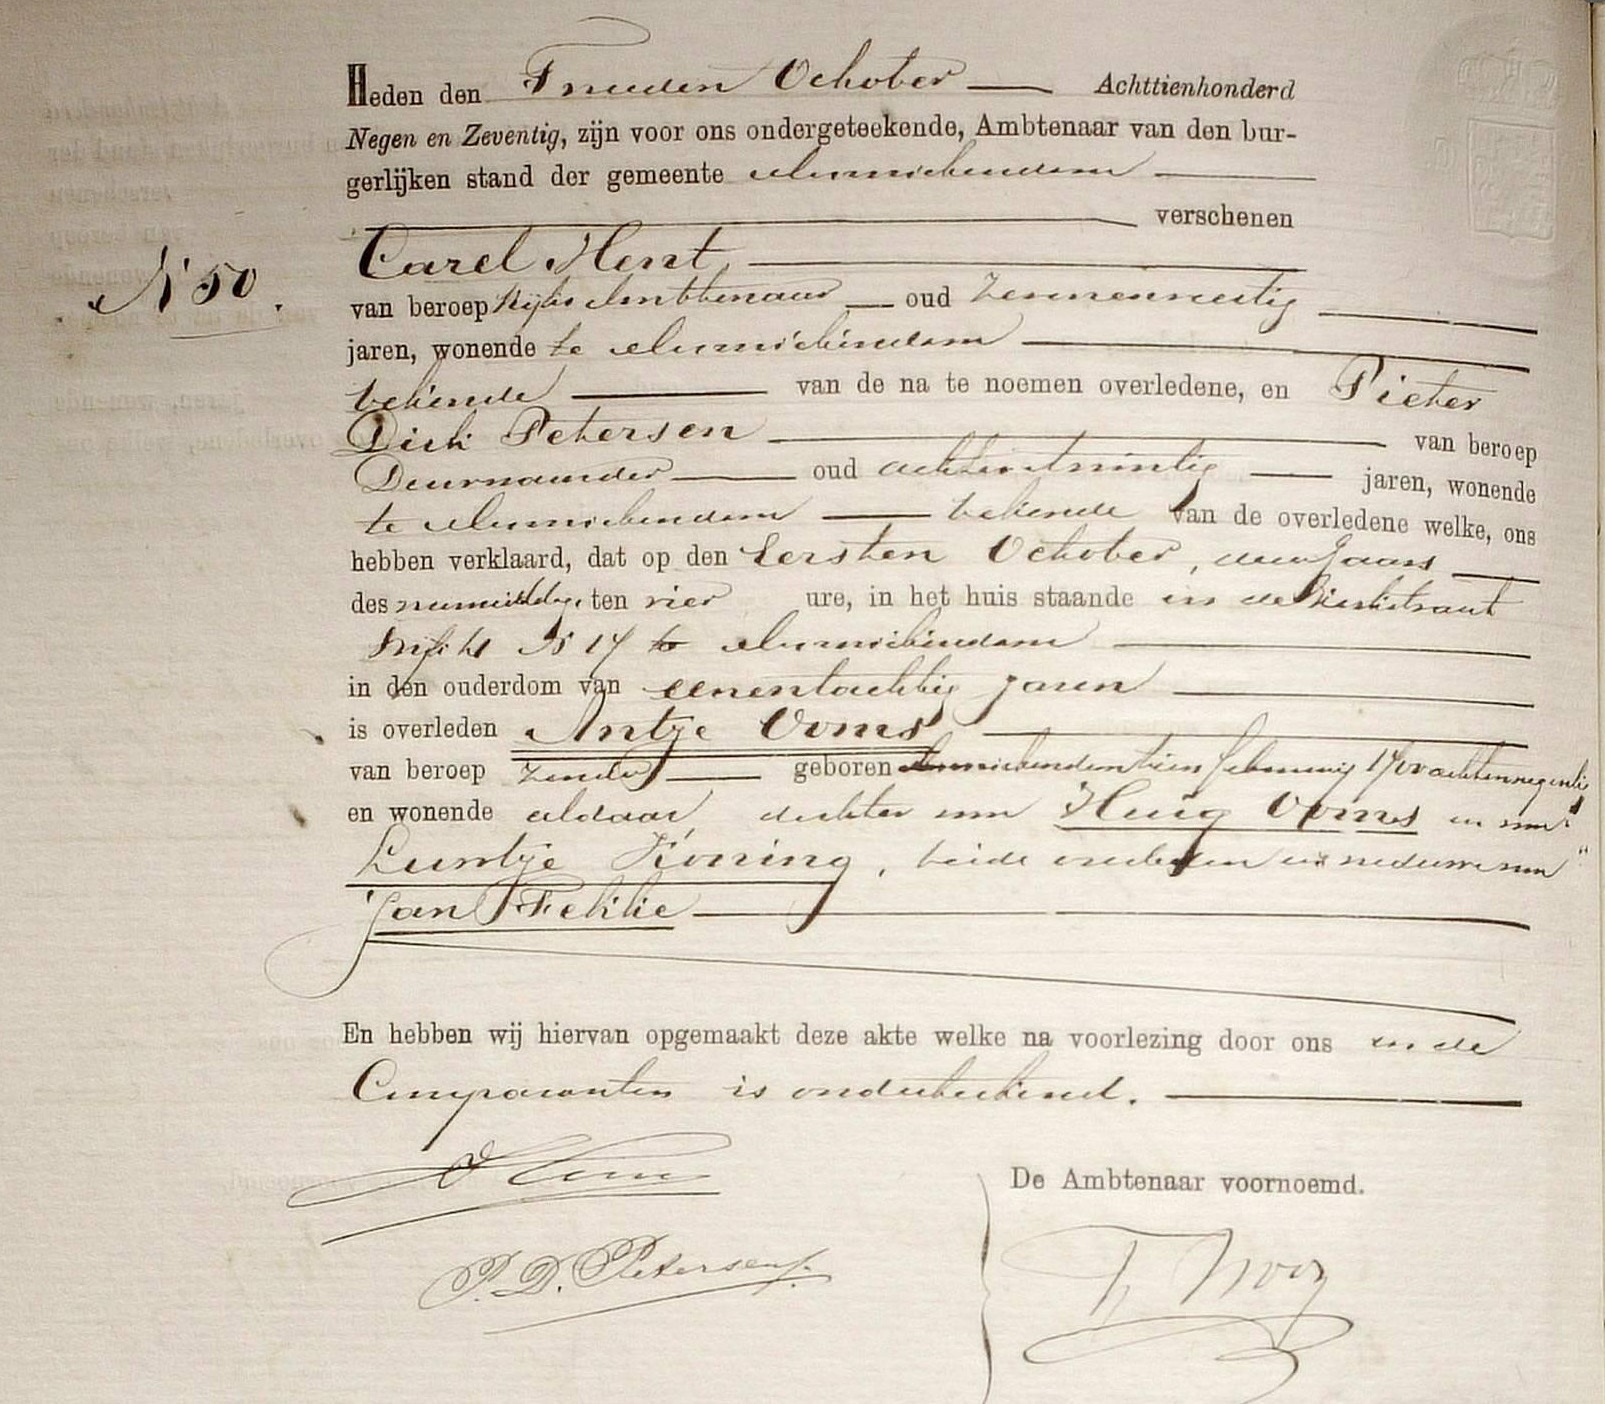 Heden den Tweeden October Achttienhonderd
Negen en Zeventig, zijn voor ons ondergeteekende, Ambtenaar van den bur-
gerlijken stand der gemeente Monnickendam
verschenen
Carel Hent
N 50.
van beroep Rijks Ambtenaar oud
jaren, wonende te Monnickendam
bekende van de na te noemen overledene, en Pieter
Dirk Petersen van beroep
Deurwaarder oud achtentwintig jaren, wonende
te Monnickendam bekende van de overledene welke, ons
hebben verklaard, dat op den Eersten October, dezes Jaars
des namiddags ten vier ure, in het huis staande in de Kerkstraat
Wijk N 14 te Monnickendam
in den ouderdom van eenentachtig jaren
is overleden Antje Ooms
van beroep zonder geboren Monnickendam tien february 1700 achtennegentig
en wonende aldaar dochter van Huig Ooms en van
Luntje Koning, beide overleden en weduwe van
Jan Fekkie
En hebben wij hiervan opgemaakt deze akte welke na voorlezing door ons en de
Comparanten is onderteekend.
De Ambtenaar voornoemd.
P. D. Petersen